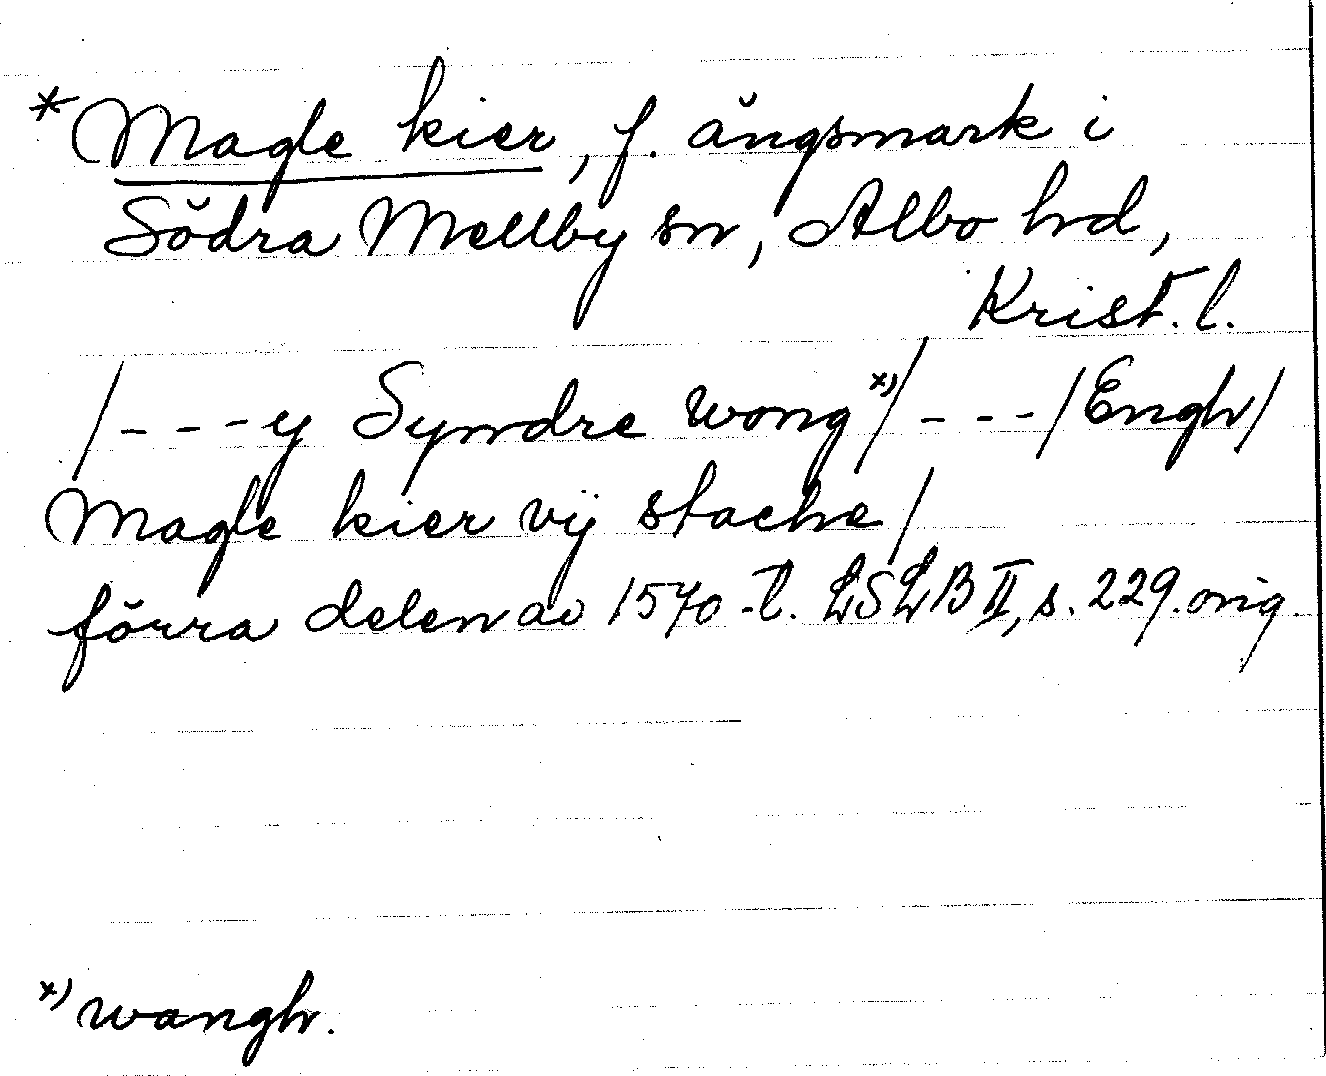 * Magle kier, f. ängsmark i
Södra Mellby sn, Albo hd,
Krist. l.
/---y Syndre wong x)/---/Engh/
Magle kier vij stache/
förra delen av 1570-t. LSLB II, s. 229. orig.
x) wangh.